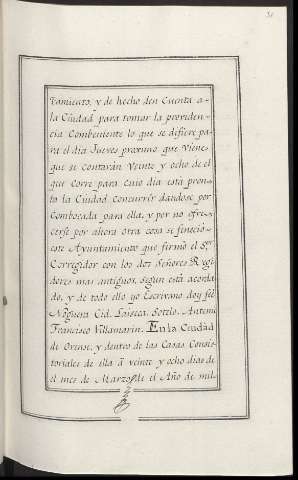 tamiento, y de hecho den Cuenta a-
la Ciudad para tomar la providen-
cia Combeniente lo que se defiere pa-
ra el dia Jueves proximo que viene
que se contarán Veinte y ocho de el
que corre para cuio dia está pron-
ta la Ciudad Concurrir dandose por
Combocada para ella, y por no ofre-
cerse por ahora otra cosa se fineció-
este Ayuntamiento que firmó el Sor.
Corregidor con los dos Señores Regi-
dores mas antiguos, segun está acorda-
do, y de todo ello yo Escrivano doy feé
Noguera Cid. Laiseca. Sotelo. Antemi
Francisco Villamarin. En la Ciudad
de Orense, y dentro de las Casas Consis-
toriales de ella á veinte y ocho dias de
el mes de Marzo de el Año de mil-